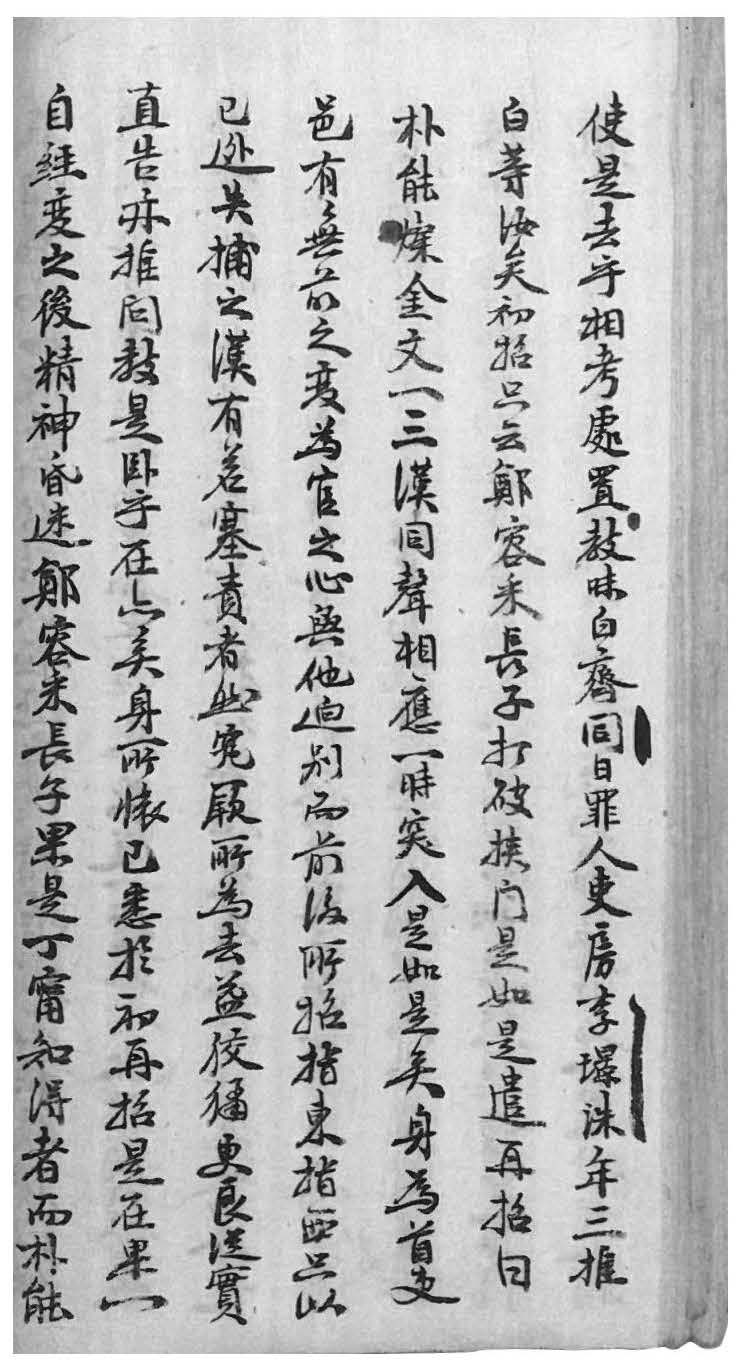 使是去乎相考處置敎味白齊同日罪人吏房李壕洙年三推
白等汝矣初招只云鄭客來長子打破挾门是如是遣再招曰
朴能爍金文一三漢同聲相應一時突入是如是矣身爲首吏
邑有無前之変爲官之心與他逈别而前後所招指東指西只以
已处失捕之漢有若塞責者然究厥所爲去益狡猾更良從實
直告亦推问敎是卧乎在亦矣身所懷已悉於初再招是在果一
自經变之後精神昏迷鄭客来長子果是丁甯知得者而朴能